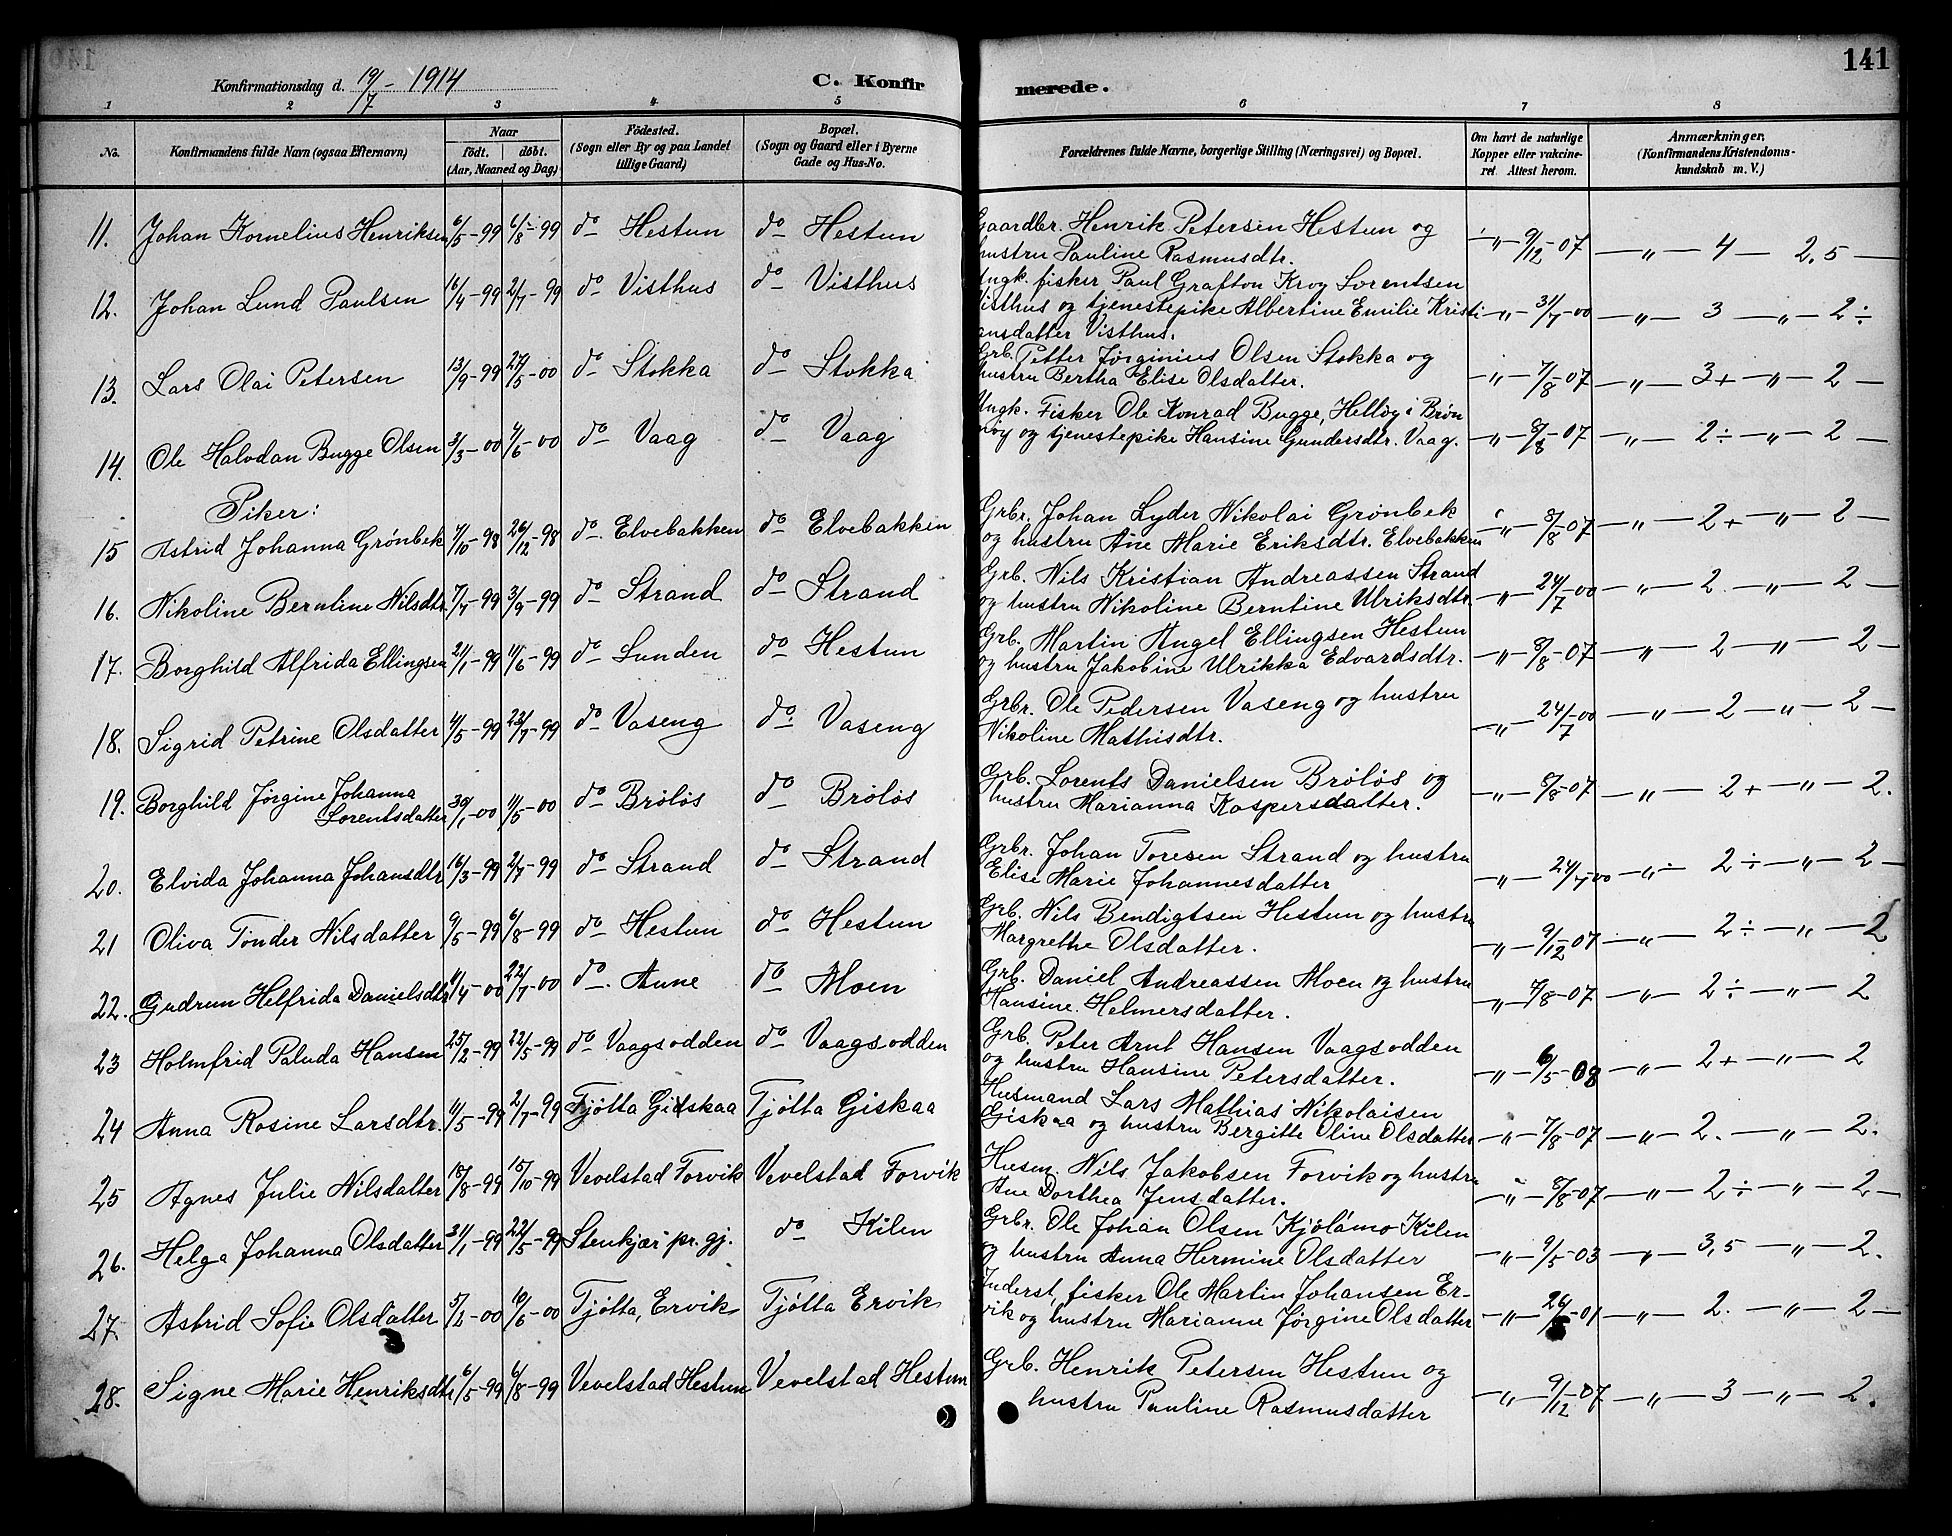 141
Konfirmationsdag d. 19/7 - 1914
C. Konfir
merede.
1 2 3 4 5 6 7 8
No.
Konfirmandens fulde Navn (ogsaa Efternavn)
Naar
födt. döbt.
(Aar, Maaned og Dag)
Födested.
(Sogn eller By og paa Landet
tillige Gaard)
Bopæl.
(Sogn og Gaard eller i Byerne
Gade og Hus-No.
Forældrenes fulde Navne, borgerlige Stilling (Næringsvei) og Bopæl.
Om havt de naturlige
Kopper eller vakcine-
ret. Attest herom.
Anmærkninger.
(Konfirmandens Kristendoms-
kundskab m. V.)
11. Johan Kornelius Henriksen 6/5-99 6/8-99 do Hestun do Hestun Gaardbr. Henrik Petersen Hestun og
hustru Pauline Rasmusdtr. -"- 9/12-07 -"- 4 - 2,5 -
12. Johan Lund Paulsen 16/4-99 2/7-99 do Visthus do Visthus Ungk. fisker Paul Grafton Kroy Sorentsen
Visthus og tjenestepike Albertine Emilie Kristi
ansdatter Visthus. -"- 31/7-00 -"- 3 -"- 2÷
13. Lars Olai Petersen 13/9-99 27/5-00 do Stokka do Stokka Grb. Petter Jørginius Olsen Stokka og
hustru Bertha Elise Olsdatter. -"- 7/8-07 -"- 3+ -"- 2 -
14. Ole Halvdan Bugge Olsen 3/3-00 4/6-00 do Vaag do Vaag Ungk. Fisker Ole Konrad Bugge, Helløy i Brøn
nøy og tjenestepike Hansine Gundersdtr. Vaag. -"- 8/8-07 -"- 2÷ -"- 2 -
Piker:
15 Astrid Johanna Grønbek 4/10-98 26/12-98 do Elvebakken do Elvebakken Grbr. Johan Lyder Nikolai Grønbek
og hustru Ane Marie Eriksdtr. Elvebakken -"- 8/8-07 -"- 2+ -"- 2 -
16. Nikoline Berntine Nilsdtr. 7/4-99 3/9-99 do Strand do Strand Grb. Nils Kristian Andreassen Strand
og hustru Nikoline Berntine Ulriksdtr. -"- 24/7-00 -"- 2. -"- 2 -
17. Borghild Alfrida Ellingsen 21/1-99 11/6-99 do Lunden do Hestun Grb. Martin Angel Ellingsen Hestun
og hustru Jakobine Ulrikka Edvardsdtr. -"- 8/8-07 -"- 2 -"- 2 -
18. Sigrid Petrine Olsdatter 4/5-99 23/7-99 do Vaseng do Vaseng Grbr. Ole Pedersen Vaseng og hustru
Nikoline Mathisdtr. -"- 24/7-00 -"- 2 -"- 2 -
19. Borghild Jørgine Johanna
Lorentsdatter 30/1-00 11/5-00 do Brøløs do Brøløs Grb. Lorents Danielsen Brøløs og
hustru Marianna Kaspersdatter. -"- 8/8-07 -"- 2+ -"- 2.
20. Elvida Johanna Johansdtr 16/3-99 2/7-99 do Strand do Strand Grbr. Johan Toresen Strand og hustru
Elise Marie Johannesdatter -"- 24/7-00 -"- 2÷ -"- 2 -
21 Oliva Tønder Nilsdatter 9/5-99 6/8-99 do Hestun do Hestun Grb. Nils Bendigtsen Hestun og hustru
Margrethe Olsdatter. -"- 9/12 07 -"- 2÷ -"- 2
22. Gudrun Helfrida Danielsdtr 11/4-00 22/7-00 do. Aune do Moen Grb. Daniel Andreassen Moen og hustru
Hansine Helmersdatter. -"- 7/8-07 -"- 2÷ -"- 2
23 Holmfrid Paluda Hansen 25/2-99 22/5-99 do Vaagsodden do Vaagsodden Grb. Peter Arnt Hansen Vaagsodden
og hustru Hansine Petersdatter. -"- 6/5-08 -"- 2+ -"- 2
24 Anna Rosine Larsdtr. 11/5-99 2/7-99 Tjøtta Gidskaa Tjøtta Giskaa Husmand Lars Mathias Nikolaisen
Giskaa og hustru Bergitte Oline Olsdatter -"- 7/8-07 -"- 2. -"- 2.
25 Agnes Julie Nilsdatter 18/8-99 15/10-99 Vevelstad Forvik Vevelstad Forvik Husm. Nils Jakobsen Forvik og hustru
Ane Dorthea Jensdatter. -"- 8/8-07 -"- 2÷ -"- 2 -
26. Helga Johanna Olsdatter 31/1-99 22/5-99 Stenkjær pr. gj. do Kilen Grbr. Ole Johan Olsen Kjølåmo Kilen
og hustru Anna Hermine Olsdatter -"- 9/5-03 -"- 3,5 -"- 2.
27. Astrid Sofie Olsdatter 5/2-00 10/6-00 Tjøtta, Ervik Tjøtta Ervik Inderst, fisker Ole Martin Johansen Er-
vik og hustru Marianne Jørgine Olsdatter -"- 26/ -01 -"- 2. -"- 2 -
28. Signe Marie Henriksdtr 6/5-99 6/8-99 Vevelstad Hestun Vevelstad Hestun Grb. Henrik Petersen Hestun og
hustru Pauline Rasmusdatter -"- 9/12-07 -"- 3 -"- 2.